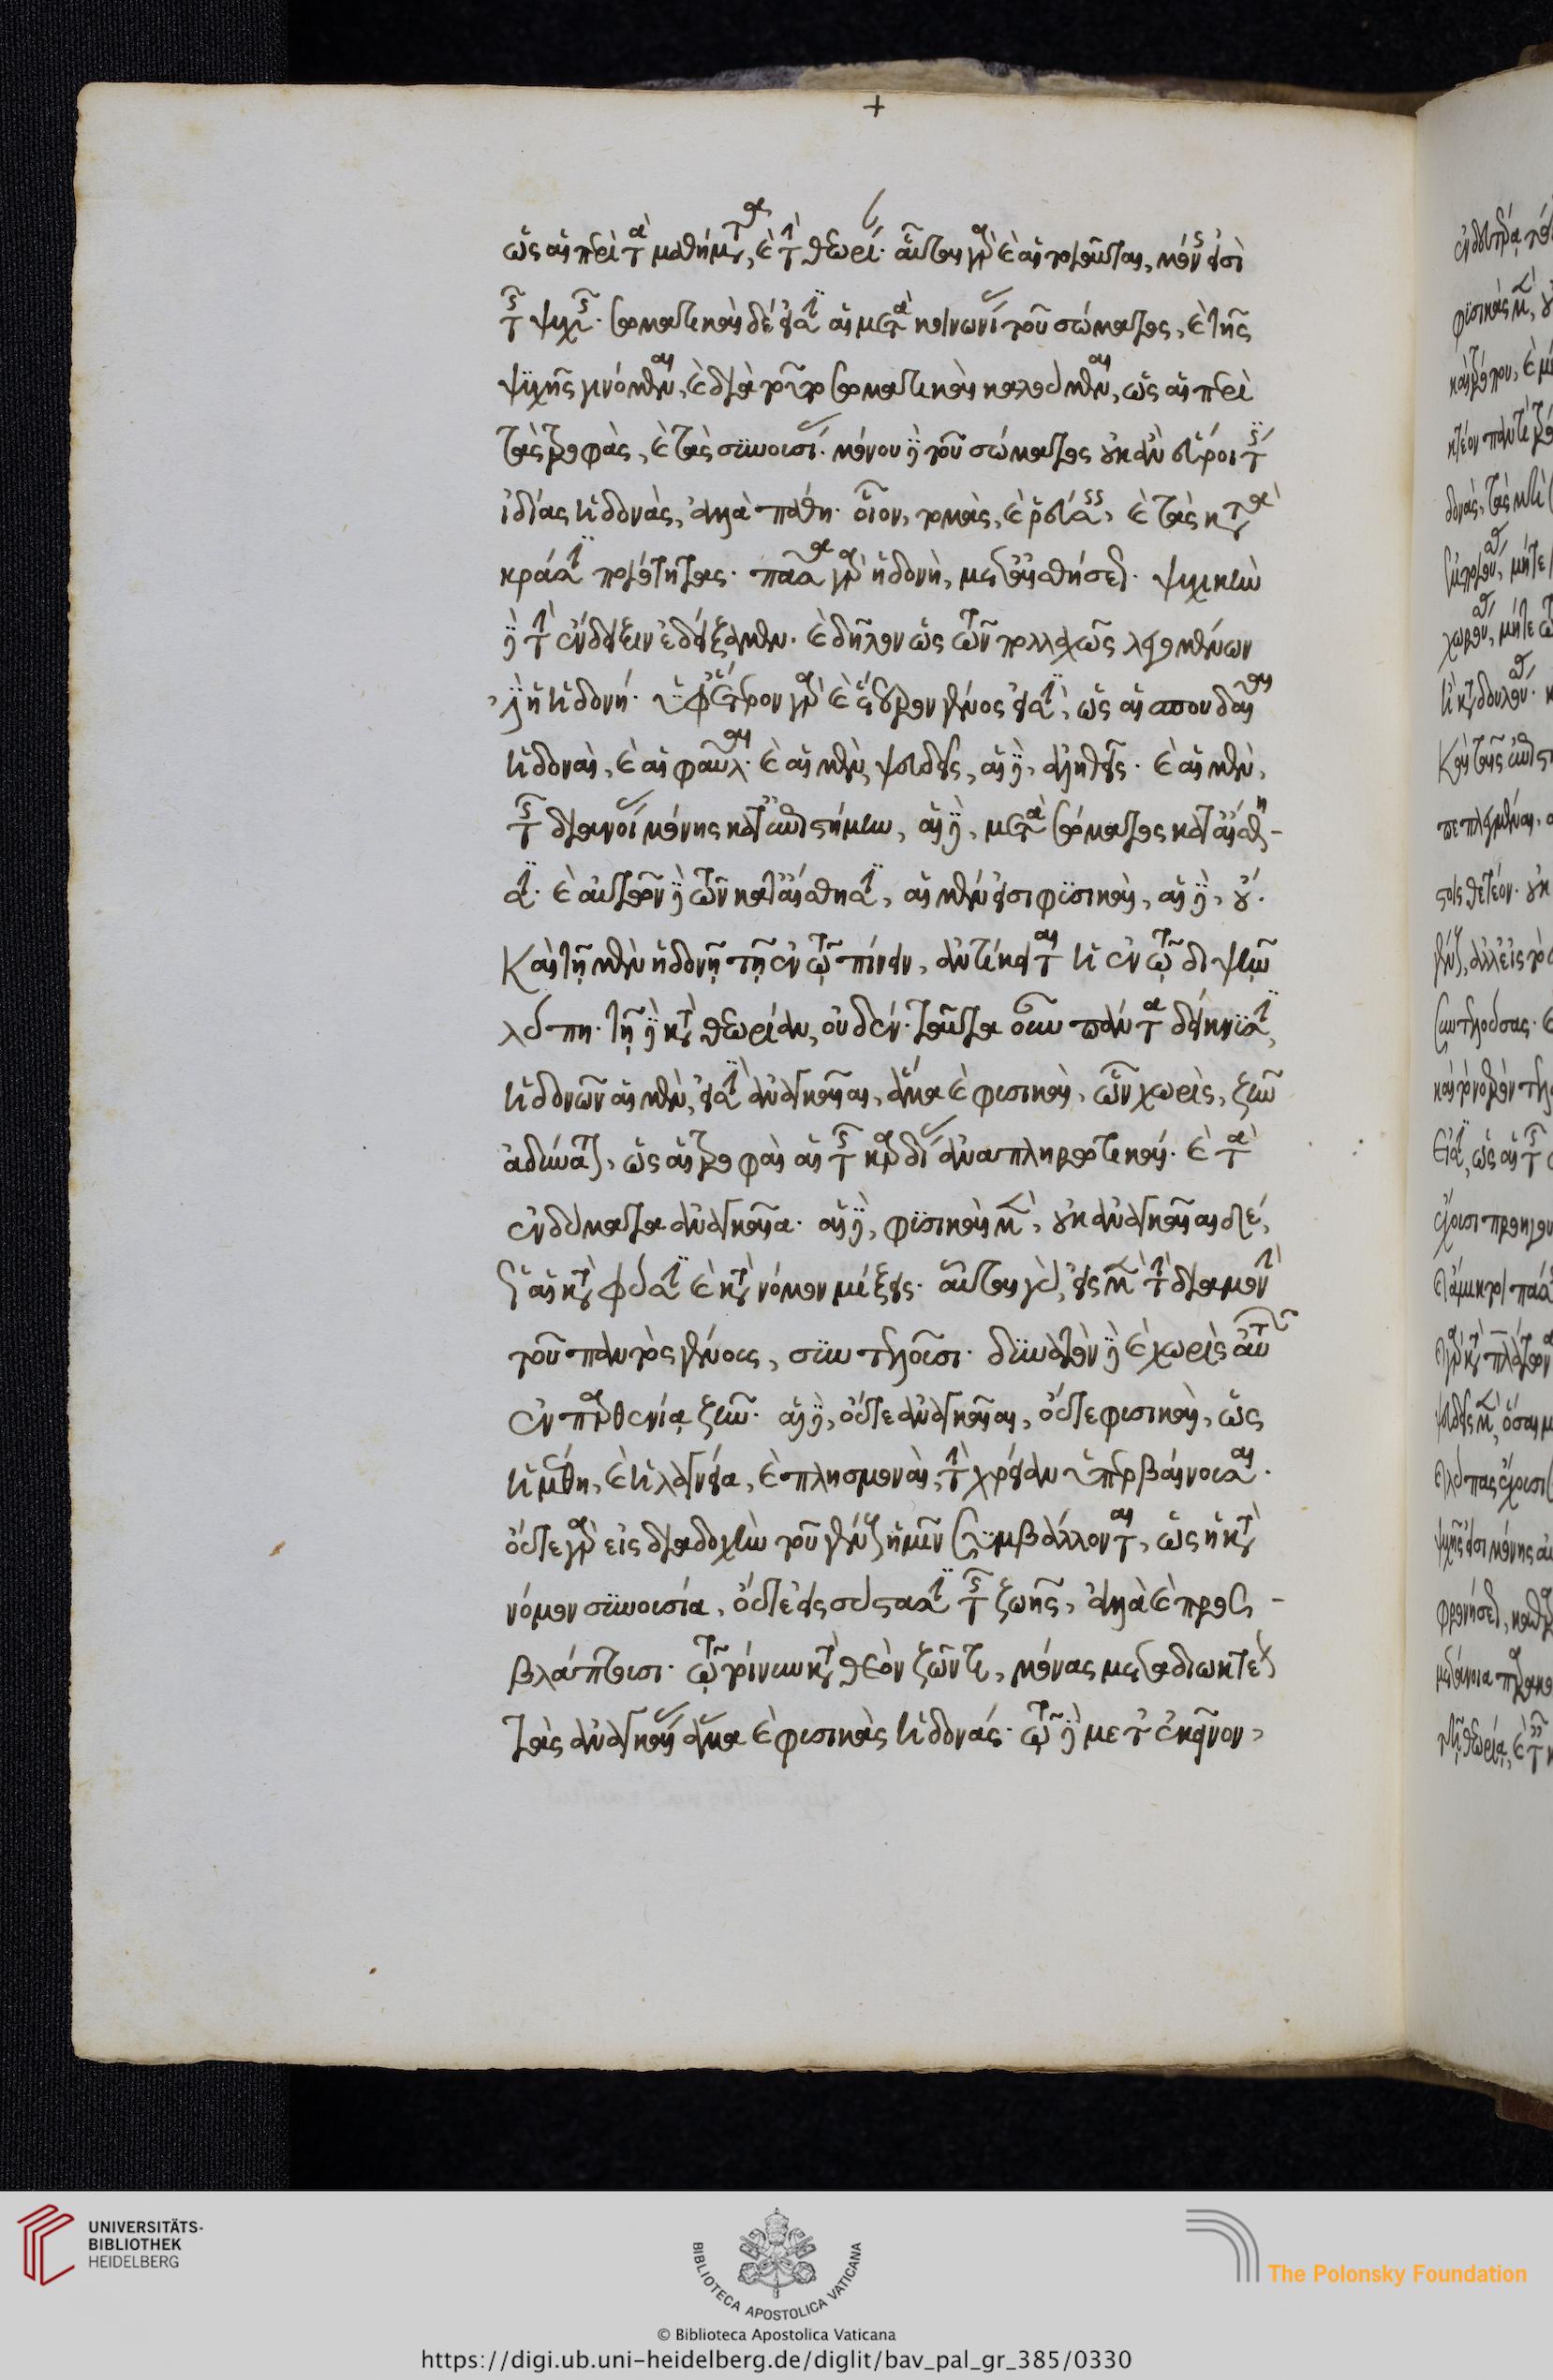 +
ὡς αἱ περὶ τὰ μαθήματα, καὶ τὴν θεωρίαν· αὗται γὰρ καὶ αἱ τοιαῦται, μόνης εἰσὶ
τῆς ψυχῆς· σωματικαὶ δέ εἰσιν αἱ μετὰ κοινωνίας τοῦ σώματος, καὶ τῆς
ψυχῆς γινόμεναι, καὶ διὰ τοῦτο σωματικαὶ καλούμεναι, ὡς αἱ περὶ
τὰς τροφὰς, καὶ τὰς συνουσίας· μόνου δὲ τοῦ σώματος οὐκ ἂν εὕροι τίς
ἰδίας ἡδονὰς, ἀλλὰ πάθη· οἷον, τομὰς, καὶ ῥεύσεις, καὶ τὰς κατὰ
κράσιν ποιότητας· πᾶσα γὰρ ἡδονὴ, μετ' αἰσθήσεως· ψυχικὴν
δὲ τὴν ἔνδειξιν ἐδείξαμεν· καὶ δῆλον ὡς τῶν πολλαχῶς λεγομένων
ἡ ἡδονή· ὑφ' ἕτερον γὰρ καὶ ἕτερον γένος εἰσὶν, ὡς αἱ σπουδαῖαι
ἡδοναὶ, καὶ αἱ φαῦλαι· καὶ αἱ μὲν ψευδεῖς, αἱ δὲ, ἀληθεῖς· καὶ αἱ μὲν,
τῆς διανοίας μόνης κατ' ἐπιστήμην, αἱ δὲ, μετὰ σώματος κατ' αἴσθη-
σιν· καὶ αὐτῶν δὲ τῶν κατ' αἴσθησιν, αἱ μέν εἰσι φυσικαὶ, αἱ δὲ, οὔ·
Καὶ τῇ μὲν ἡδονῇ τῇ ἐν τῷ πίνειν, ἀντίκειται ἡ ἐν τῷ διψῆν
λύπη· τῇ δὲ κατὰ θεωρίαν, οὐδέν· ταῦτα οὖν πάντα δείκνυσιν,
ἡδονῶν αἱ μὲν, εἰσὶν ἀναγκαῖαι, ἅμα καὶ φυσικαὶ, ὧν χωρὶς, ζῆν
ἀδύνατον, ὡς αἱ τροφαὶ αἱ τῆς καρδίας ἀναπληρωτικαί· καὶ τὰ
ἐνδύματα ἀναγκαῖα· αἱ δὲ, φυσικαὶ μὲν, οὐκ ἀναγκαῖαι δέ,
ὡς αἱ κατὰ φύσιν καὶ κατὰ νόμον μίξεις· αὗται γὰρ, εἰς μὲν τὴν διαμονὴν
τοῦ παντὸς γένους, συντελοῦσι· δυνατὸν δὲ καὶ χωρὶς αὐτῶν
ἐν παρθενίᾳ ζῆν· αἱ δὲ, οὔτε ἀναγκαῖαι, οὔτε φυσικαὶ, ὡς
ἡ μέθη, καὶ ἡ λαγνεία, καὶ πλησμοναὶ, τὴν χρείαν ὑπερβαίνουσαι·
οὔτε γὰρ εἰς διαδοχὴν τοῦ γένους ἡμῶν συμβάλλονται, ὡς ἡ κατὰ
νόμον συνουσία, οὔτε εἰς σύστασιν τῆς ζωῆς, ἀλλὰ καὶ προσ-
βλάπτουσι· τῷ τοίνυν κατὰ θεὸν ζῶντι, μόνας μεταδιωκτέον
τὰς ἀναγκαίας ἅμα καὶ φυσικὰς ἡδονάς· τῷ δὲ μετ' ἐκεῖνον,
UNIVERSITÄTS-
BIBLIOTHEK
HEIDELBERG
BIBLIOTECA APOSTOLICA VATICANA
The Polonsky Foundation
© Biblioteca Apostolica Vaticana
https://digi.ub.uni-heidelberg.de/diglit/bav_pal_gr_385/0330